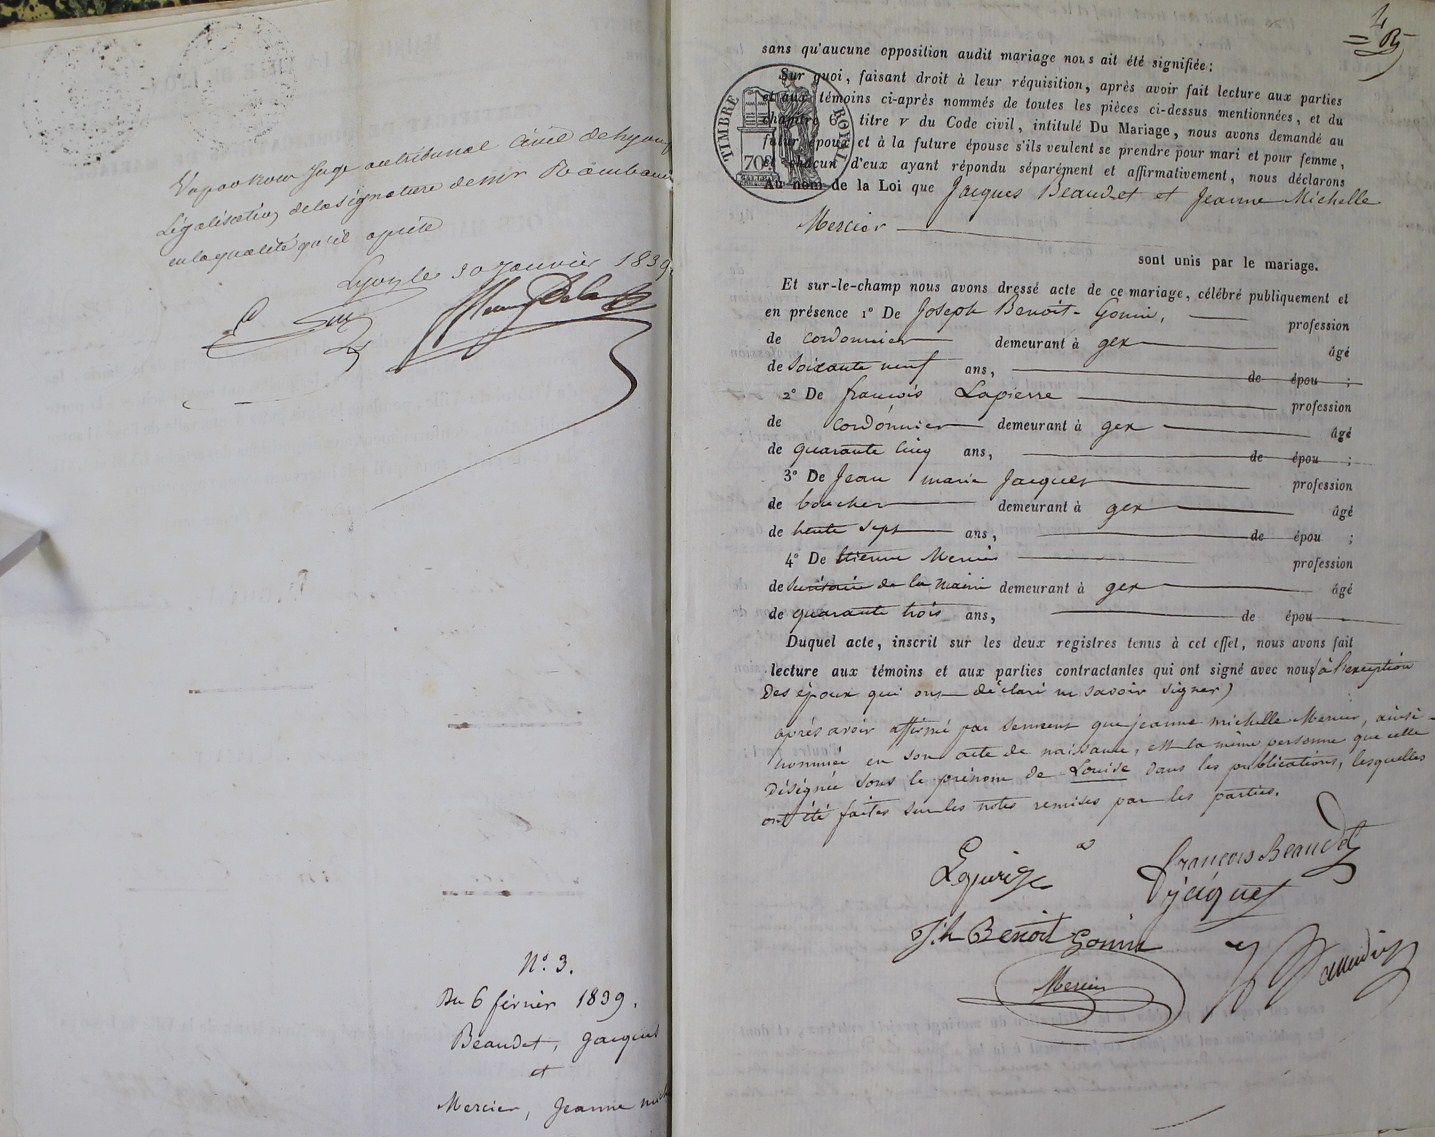 Vu par nous Juge au tribunal Civil de Lyon
Légalisation de la signature de Mr
en la qualité qu'il
Lyon le 30 Janvier 1839
N.º 3.
Du 6 février 1839.
Beaudet, Jacques
et
Mercier, Jeanne
sans qu'aucune opposition audit mariage nous ait été signifiée;
Sur quoi, faisant droit à leur réquisition, après avoir fait lecture aux parties
et aux témoins ci-après nommés de toutes les pièces ci-dessus mentionnées, et du
chapitre 6, titre v du Code civil, intitulé Du Mariage, nous avons demandé au
futur époux et à la future épouse s'ils veulent se prendre pour mari et pour femme,
et chacun d'eux ayant répondu séparément et affirmativement, nous déclarons
Au nom de la Loi que Jacques Beaudet et Jeanne Michelle
Mercier
TIMBRE ROYAL
70
sont unis par le mariage.
Et sur-le-champ nous avons dressé acte de ce mariage, célébré publiquement et
en présence 1º De Joseph Benoit-Gonin, profession
de cordonnier demeurant à gex âgé
de Soixante neuf ans, de épou ;
2º De françois Lapierre profession
de cordonnier demeurant à gex âgé
de quarante cinq ans, de épou ;
3º De Jean marie Jacquet profession
de boucher demeurant à gex âgé
de trente sept ans, de épou ;
4º De Etienne Mercier profession
de Secrétaire de la Mairie demeurant à gex âgé
de quarante trois ans, de épou
Duquel acte, inscrit sur les deux registres tenus à cet effet, nous avons fait
lecture aux témoins et aux parties contractantes qui ont signé avec nous (à l'exception
Des époux qui ont déclaré ne savoir signer)
après avoir affirmé par serment que jeanne michelle Mercier, ainsi
nommée en son acte de naissance, est la même personne que celle
Désignée sous le prénom de Louise dans les publications, lesquelles
ont été faites sur les notes remises par les parties.
Lapierre
françois Beaudet
Jacquet
J.h Benoit Gonin
Mercier